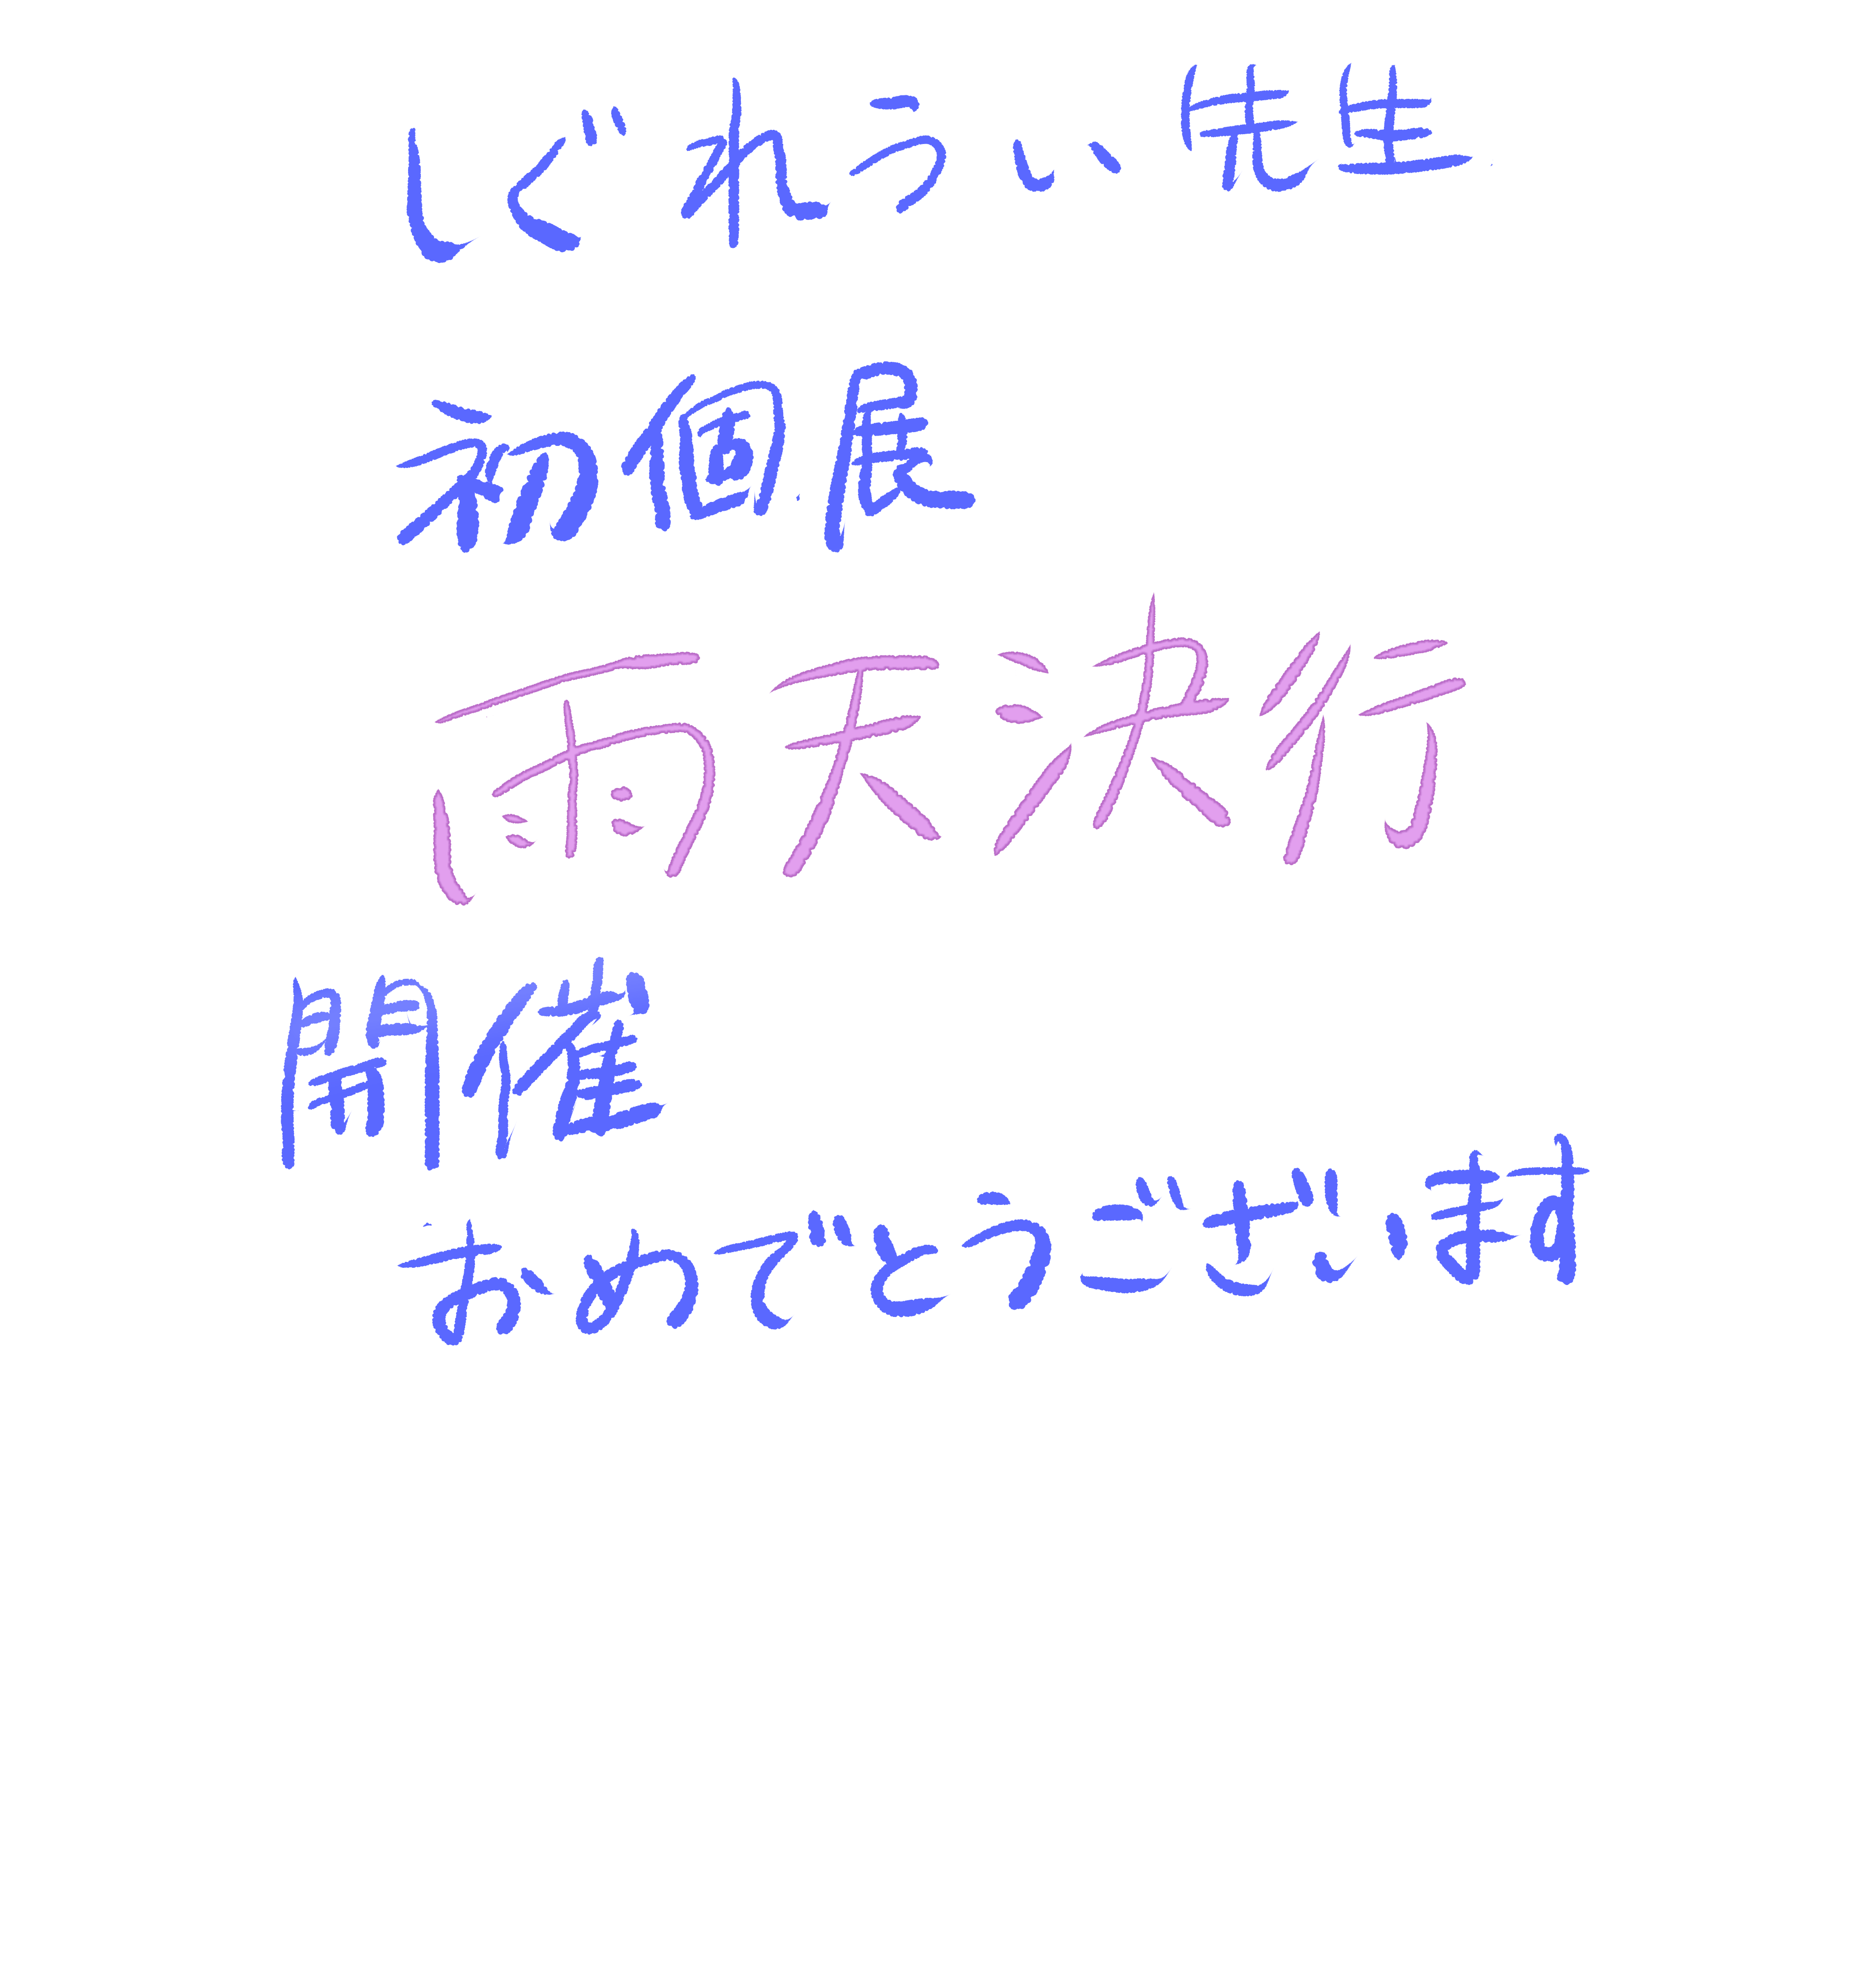 しぐれうい先生
初個展
雨天決行
開催
おめでとうございます